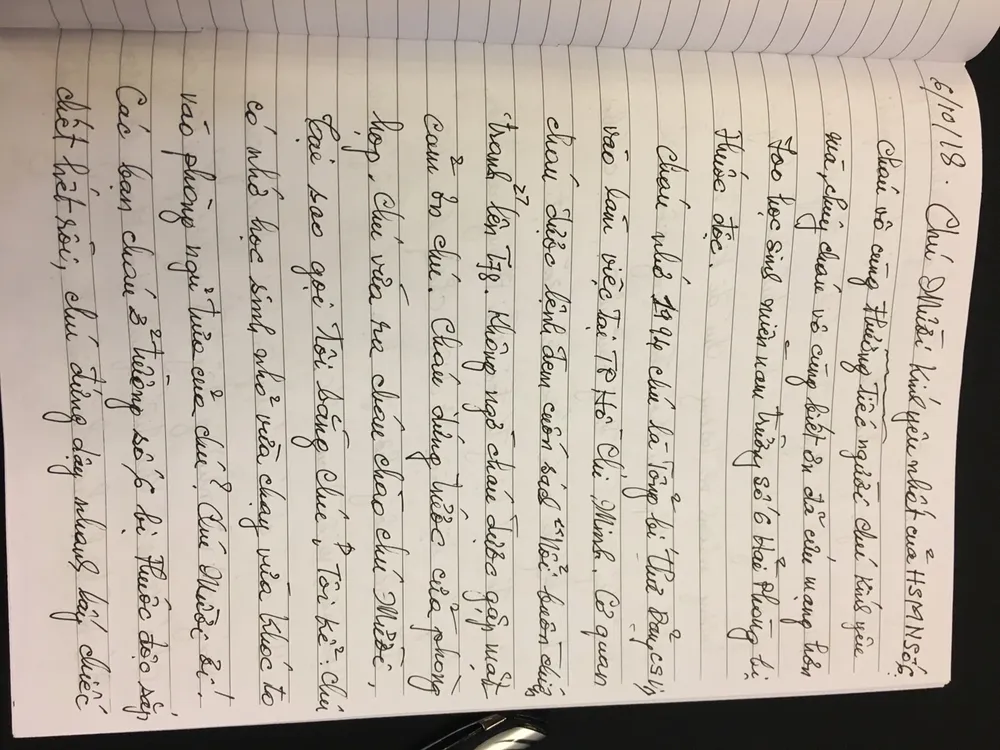 6/10/18. Chú Mười kính yêu nhất của HSMN Số 6.
Cháu vô cùng thương tiếc người chú kính yêu
mà, chúng cháu vô cùng biết ơn đã cứu mạng hơn
700 học sinh miền nam trường số 6 Hải Phòng bị
thuốc độc.
Cháu nhớ 1994 chú là Tổng bí thư Đảng CS
vào làm việc tại TP Hồ Chí Minh. Cơ quan
cháu được lệnh đem cuốn sách "Nỗi buồn chiến
tranh" lên T78. Không ngờ cháu được gặp mặt
cảm ơn chú. Cháu đứng trước cửa phòng
họp, chú vừa ra cháu chào chú Mười,
tại sao gọi tôi bằng chú? Tôi kể: chú
có nhớ học sinh nhỏ vừa chạy vừa khóc to
vào phòng ngủ trưa của chú? Chú Mười ơi!
Các bạn cháu ở trường số 6 bị thuốc độc sắp
chết hết rồi, chú đứng dậy nhanh, lấy chiếc